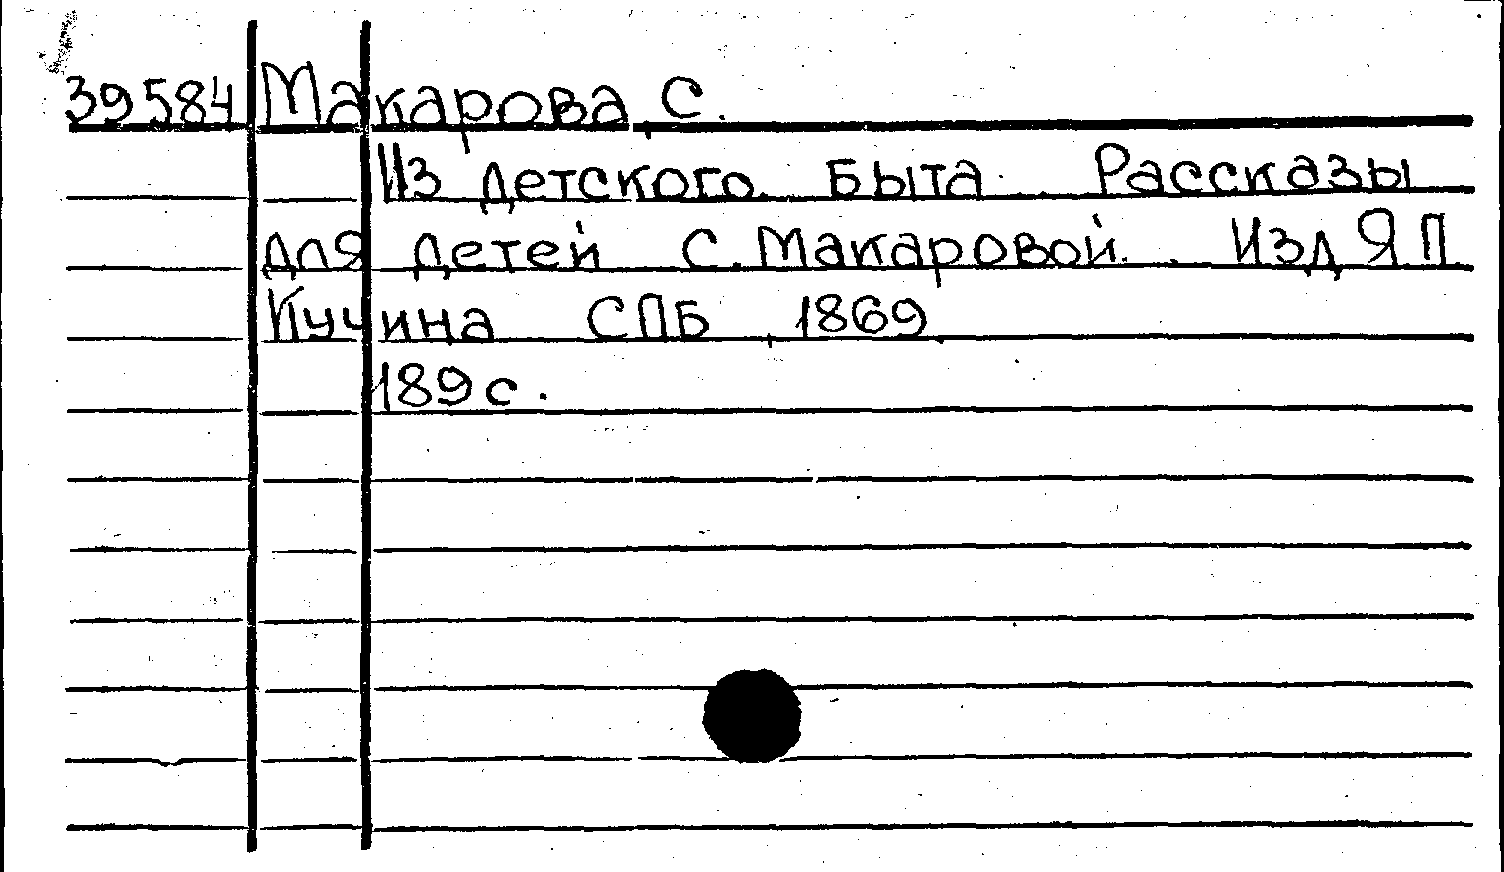 39584 Макарова, С.
Из детского быта. Рассказы
для детей С. Макаровой. Изд Я П
Кучина СПБ, 1869
189 с.